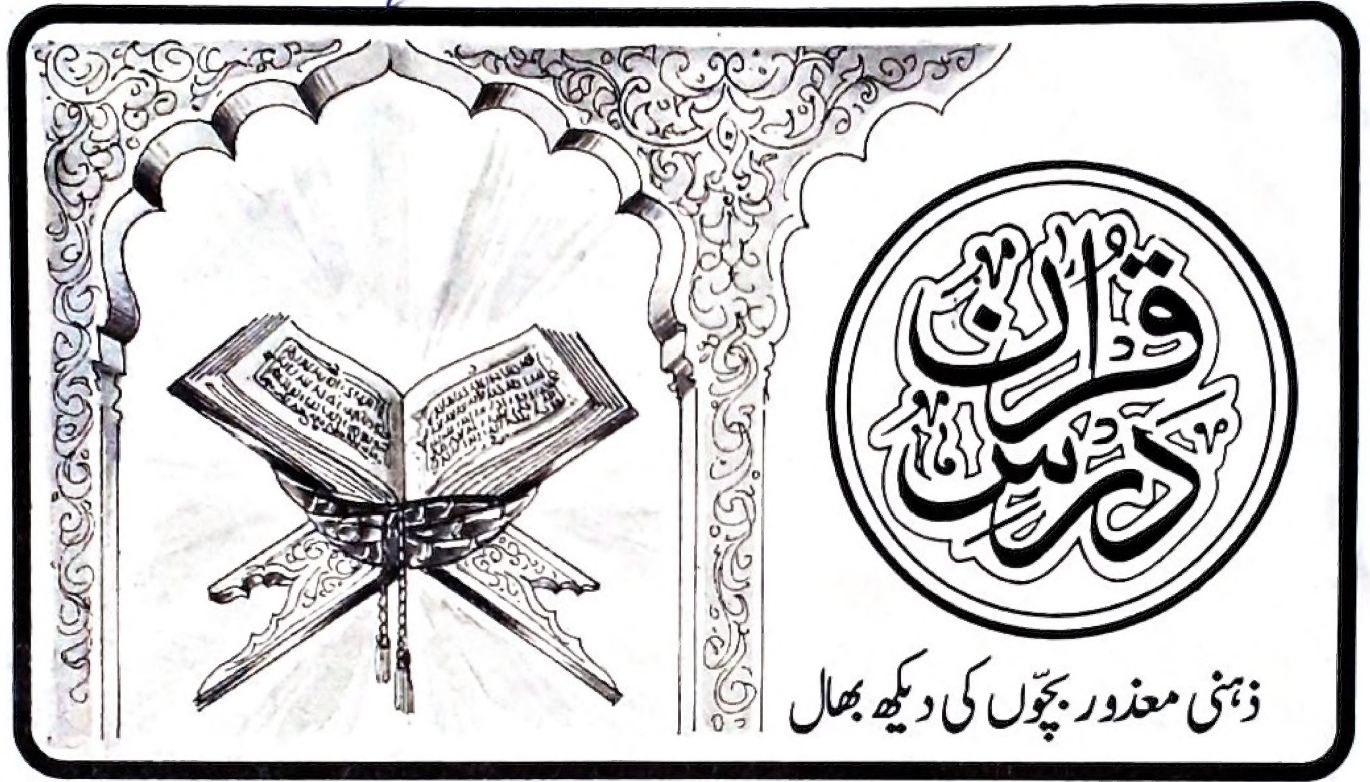 درس قرآن
ذہنی معذور بچّوں کی دیکھ بھال